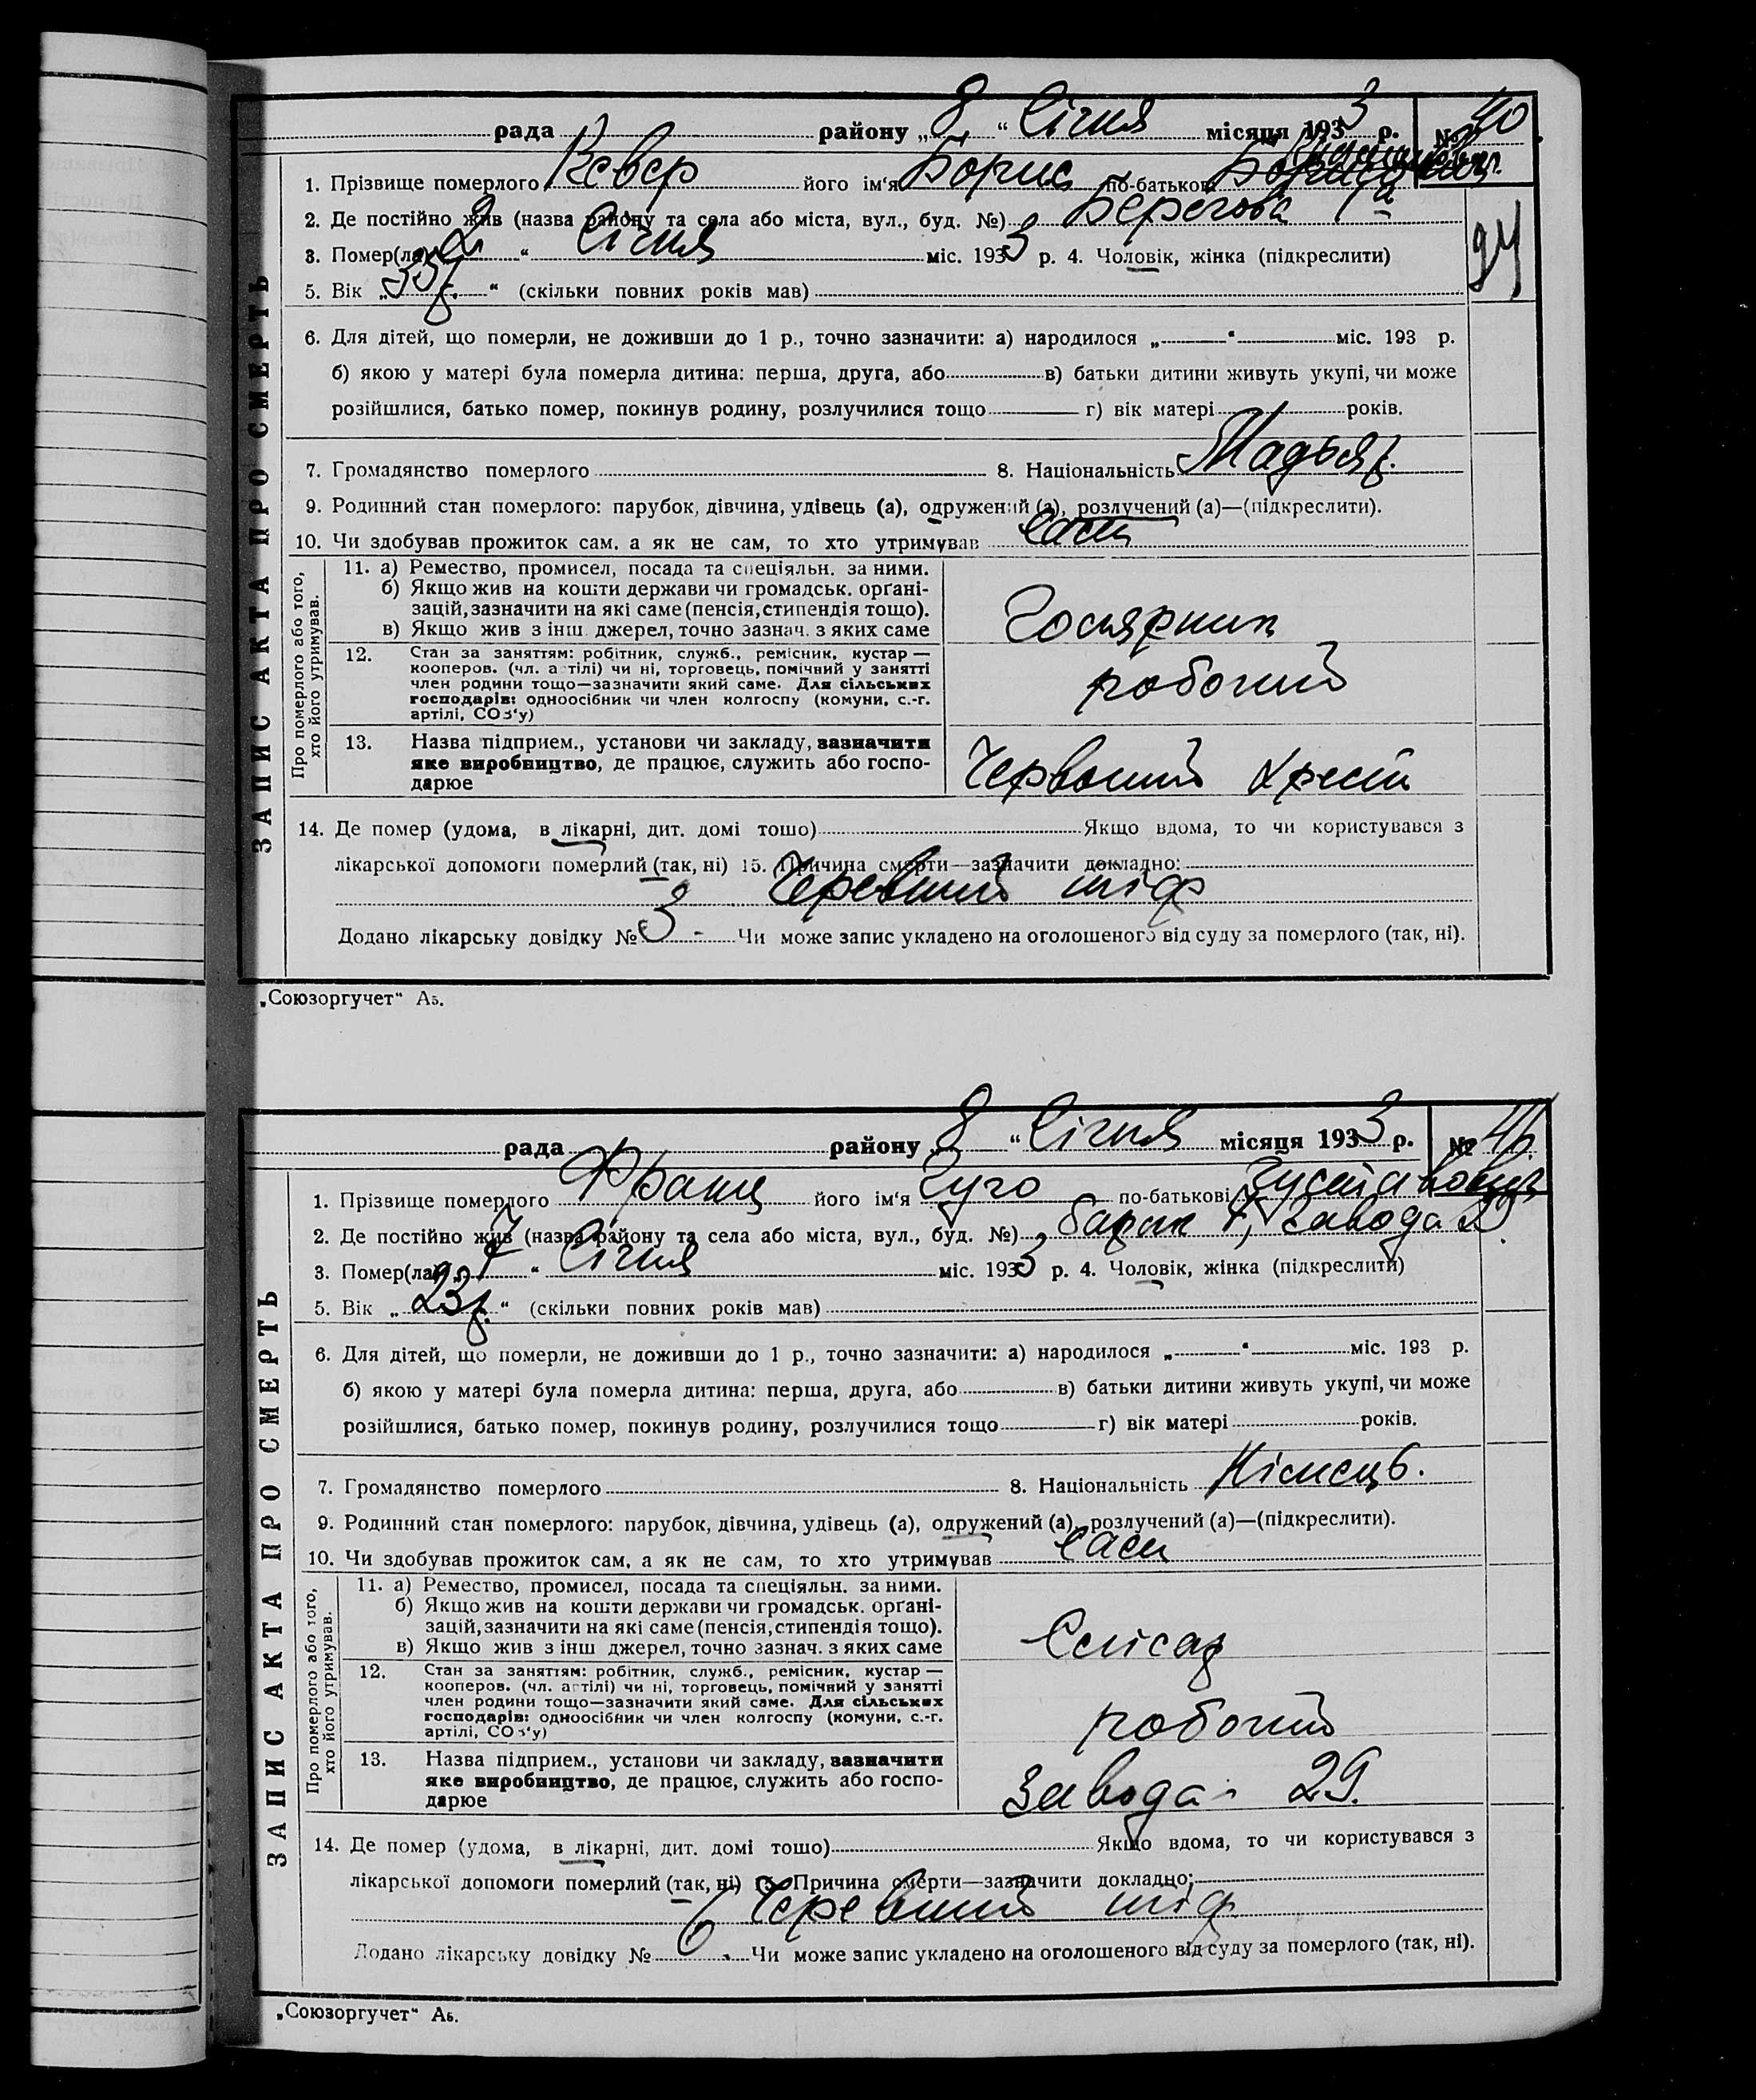 рада району „ 8 “ Січня місяця 1933 р. № 40
1. Прізвище померлого Кевер його ім‘я Борис по-батькові
2. Де постійно жив (назва району та села або міста, вул., буд. №) Берегова 1а
3. Помер(ла) „ 2 “ Січня міс. 1933 р. 4. Чоловік, жінка (підкреслити)
94
5. Вік „ 33 р. “ (скільки повних років мав)
6. Для дітей, що померли, не доживши до 1 р., точно зазначити: а) народилося „ “ міс. 193 р.
б) якою у матері була померла дитина: перша, друга, або в) батьки дитини живуть укупі, чи може
розійшлися, батько помер, покинув родину, розлучилися тощо г) вік матері років.
7. Громадянство померлого 8. Національність Мадьяр.
9. Родинний стан померлого: парубок, дівчина, удівець (а), одружений (а), розлучений (а)—(підкреслити).
10. Чи здобував прожиток сам, а як не сам, то хто утримував сам
ЗАПИС АКТА ПРО СМЕРТЬ
Про померлого або того, хто його утримував.
11. а) Ремество, промисел, посада та спеціяльн. за ними.
б) Якщо жив на кошти держави чи громадськ. орґані-
зацій, зазначити на які саме (пенсія, стипендія тощо).
в) Якщо жив з інш. джерел, точно зазнач. з яких саме
12. Стан за заняттям: робітник, служб., ремісник, кустар—
кооперов. (чл. артілі) чи ні, торговець, помічний у занятті
член родини тощо—зазначити який саме. Для сільських
господарів: одноосібник чи член колгоспу (комуни, с.-г.
артілі, СОЗ‘у)
робочий
13. Назва підприєм., установи чи закладу, зазначити
яке виробництво, де працює, служить або госпо-
дарює
Червоний Хрест
14. Де помер (удома, в лікарні, дит. домі тощо) Якщо вдома, то чи користувався з
лікарської допомоги померлий (так, ні) 15. Причина смерти—зазначити докладно:
Черевний тіф
Додано лікарську довідку № 3 Чи може запис укладено на оголошеного від суду за померлого (так, ні).
„Союзоргучет“ А5.
рада району „ 8 “ Січня місяця 1933 р. № 41.
1. Прізвище померлого Франц його ім‘я Гуго по-батькові Густавович
2. Де постійно жив (назва району та села або міста, вул., буд. №) барак 4, Завода 29.
3. Помер(ла) „ 7 “ Січня міс. 1933 р. 4. Чоловік, жінка (підкреслити)
5. Вік „ 23 р. “ (скільки повних років мав)
6. Для дітей, що померли, не доживши до 1 р., точно зазначити: а) народилося „ “ міс. 193 р.
б) якою у матері була померла дитина: перша, друга, або в) батьки дитини живуть укупі, чи може
розійшлися, батько помер, покинув родину, розлучилися тощо г) вік матері років.
7. Громадянство померлого 8. Національність Німець.
9. Родинний стан померлого: парубок, дівчина, удівець (а), одружений (а), розлучений (а)—(підкреслити).
10. Чи здобував прожиток сам, а як не сам, то хто утримував сам
ЗАПИС АКТА ПРО СМЕРТЬ
Про померлого або того, хто його утримував.
11. а) Ремество, промисел, посада та спеціяльн. за ними.
б) Якщо жив на кошти держави чи громадськ. орґані-
зацій, зазначити на які саме (пенсія, стипендія тощо).
в) Якщо жив з інш джерел, точно зазнач. з яких саме
Слюсар
12. Стан за заняттям: робітник, служб., ремісник, кустар—
кооперов. (чл. артілі) чи ні, торговець, помічний у занятті
член родини тощо—зазначити який саме. Для сільських
господарів: одноосібник чи член колгоспу (комуни, с.-г.
артілі, СОЗ‘у)
робочий
13. Назва підприєм., установи чи закладу, зазначити
яке виробництво, де працює, служить або госпо-
дарює
Завода 29.
14. Де помер (удома, в лікарні, дит. домі тощо) Якщо вдома, то чи користувався з
лікарської допомоги померлий (так, ні) 15. Причина смерти—зазначити докладно:
Черевний тіф
Додано лікарську довідку № 6. Чи може запис укладено на оголошеного від суду за померлого (так, ні).
„Союзоргучет“ А5.